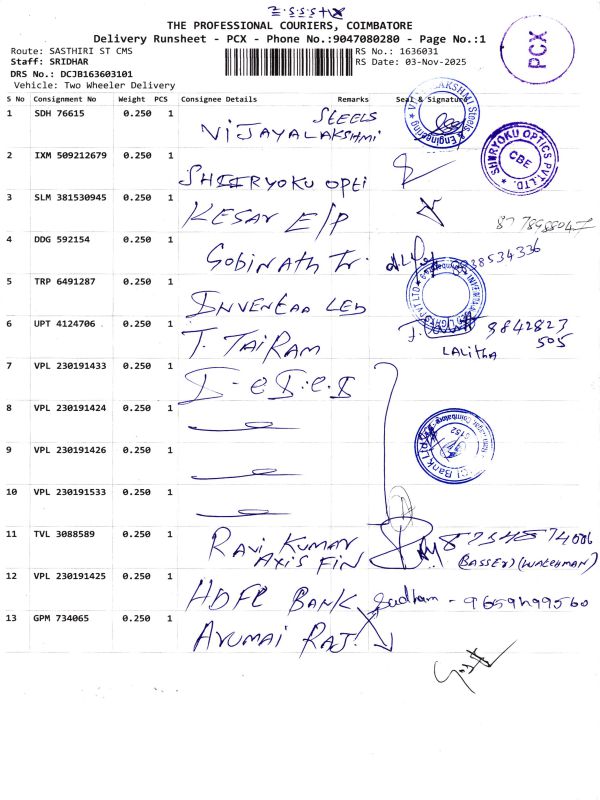 THE PROFESSIONAL COURIERS, COIMBATORE
Delivery Runsheet - PCX - Phone No.:9047080280 - Page No.:1
Route: SASTHIRI ST CMS
RS No.: 1636031
Staff: SRIDHAR
RS Date: 03-Nov-2025
DRS No.: DCJB163603101
Vehicle: Two Wheeler Delivery
PCX
S No Consignment No Weight PCS Consignee Details Remarks Seal & Signature
1 SDH 76615 0.250 1 VIJAYALAKSHMI STEELS
2 IXM 509212679 0.250 1 SHIRYOKU OPTI
SHIRYOKU OPTICS PVT. LTD. CBE
3 SLM 381530945 0.250 1 KESAV E/P
4 DDG 592154 0.250 1 Gobinath Tr.
5 TRP 6491287 0.250 1 INVENTAA LED
6 UPT 4124706 0.250 1 T. JAIRAM
9842823
505
LALitha
7 VPL 230191433 0.250 1
8 VPL 230191424 0.250 1
9 VPL 230191426 0.250 1
10 VPL 230191533 0.250 1
11 TVL 3088589 0.250 1 RAVI KUMAR
AXIS FIN
(WATCHMAN)
12 VPL 230191425 0.250 1 HDFC BANK
13 GPM 734065 0.250 1 ARUMAI RAJ.